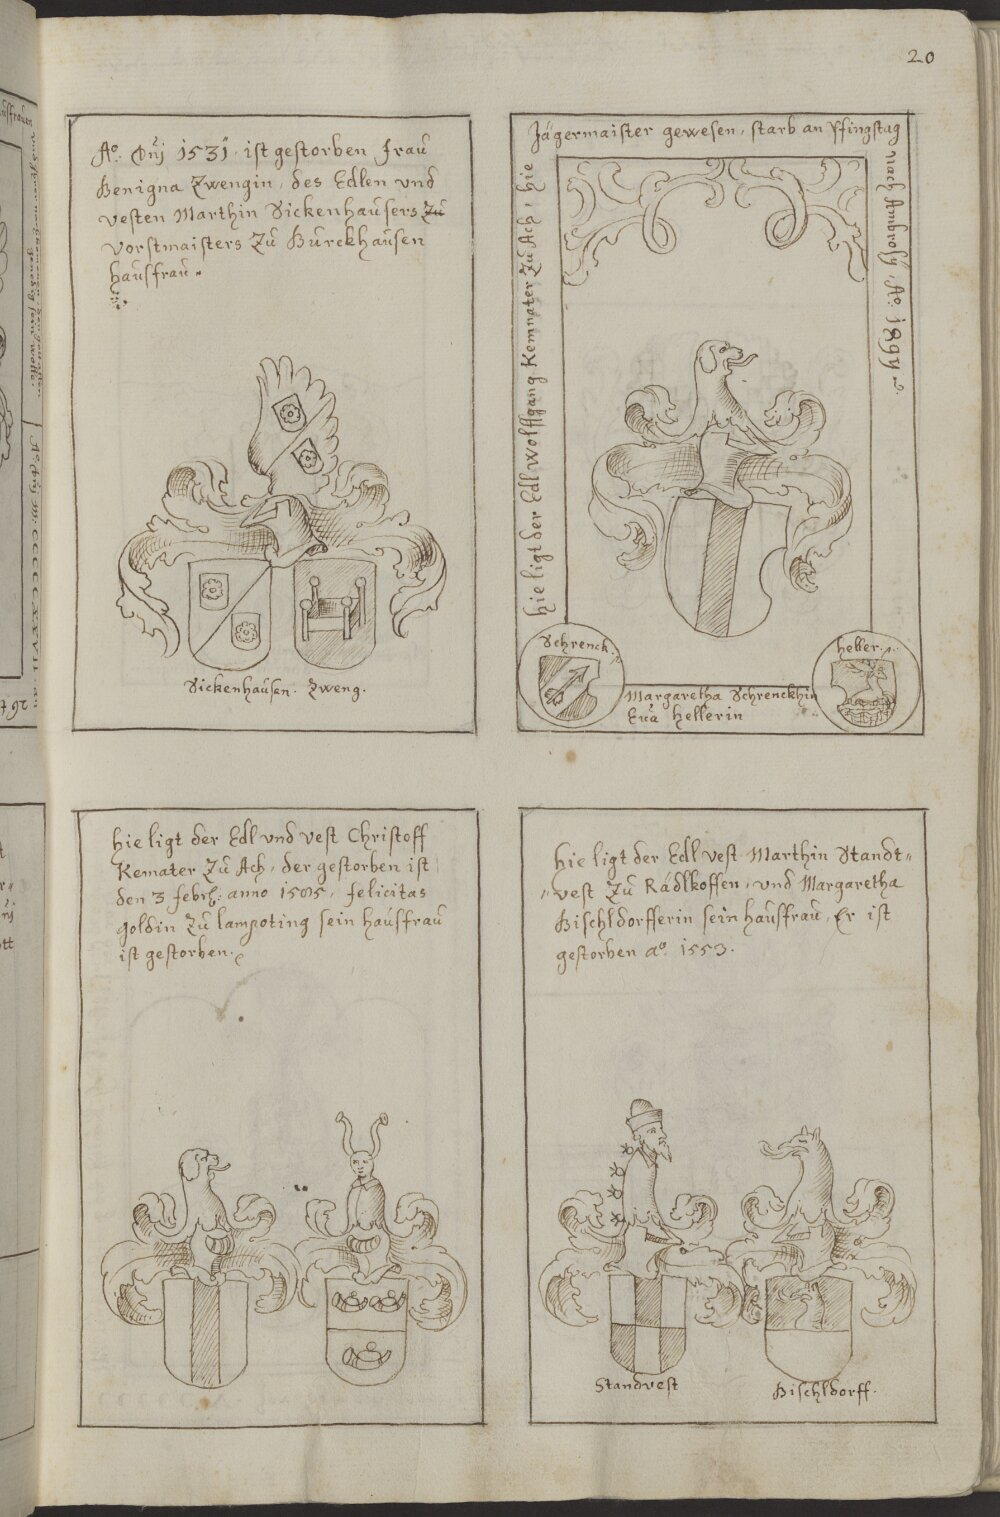 20
Aº. Dnj 1531. ist gestorben Frau
Benigna Zwengin, des Edlen und
vesten Marthin Sickenhausers Zu
vorstmaisters Zu Burckhausen
hausfrau.
Sickenhausen. Zweng.
Hie ligt der Edl Wolffgang Kemnater Zu Ach, hie
Jägermaister gewesen, starb an Pfingstag
nach Ambrosÿ, Aº.
Schrenck.
Heller.
Margaretha Schrenckhin
Eua Hellerin
Hie ligt der Edl und vest Christoff
Kemater Zu Ach, der gestorben ist
den 3 febr: anno 1505, Felicitas
Goldin Zu lampoting sein hausfrau
ist gestorben.
Hie ligt der Edl vest Marthin Standt=
=vest Zu Rädlkoffen, und Margaretha
Bischldorfferin sein hausfrau, Er ist
gestorben aº. 1553.
Standvest
Bischldorff.